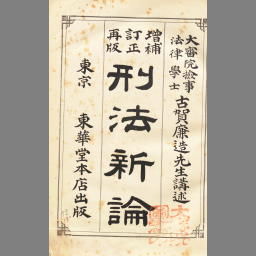 大審院檢事
法律學士
古賀廉造先生講述
増補
訂正
再版
刑法新論
東京
東華堂本店出版